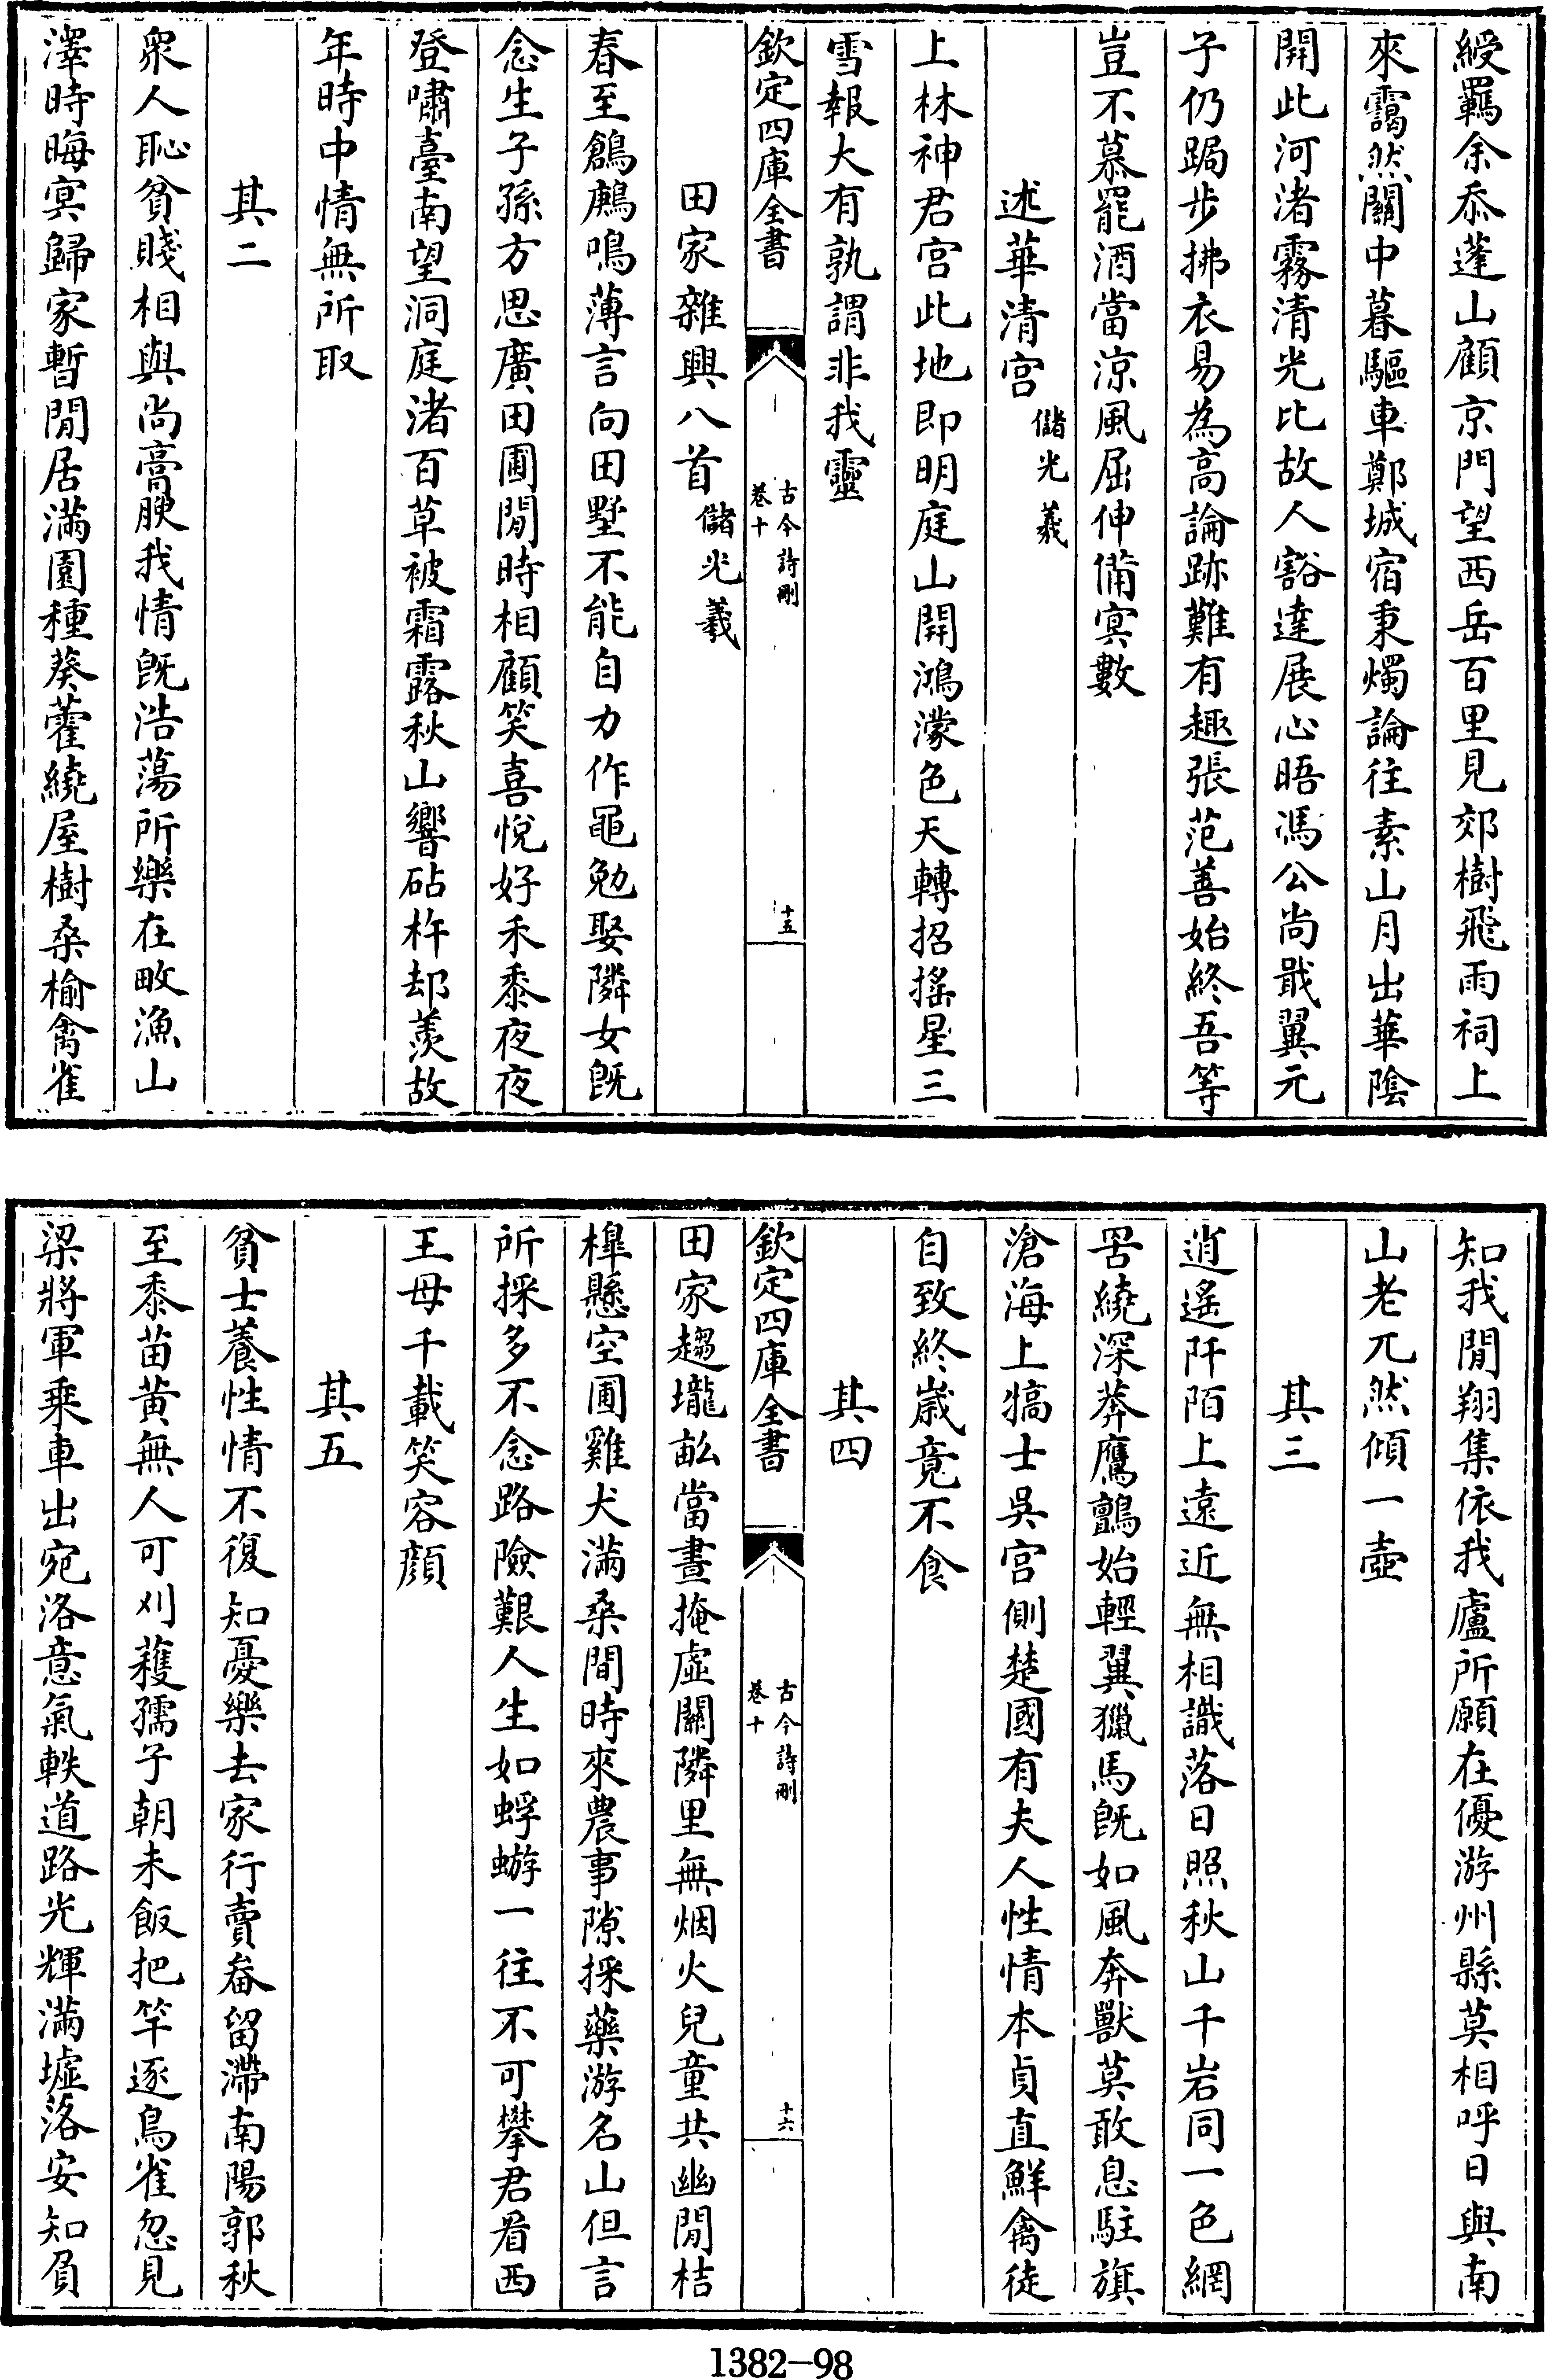 綬羈余忝蓬山顧京門望西岳百里見郊樹飛雨祠上
來靄然關中暮驅車鄭城宿秉燭論往素山月出華陰
開此河渚霧清光比故人豁達展心晤馮公尚戢翼元
子仍跼步拂衣易為高論跡難有趣張范善始終吾等
豈不慕罷酒當涼風屈伸備冥數
述華清宫儲光羲
上林神君宫此地即明庭山開鴻濛色天轉招搖星三
雪報大有孰謂非我靈
欽定四庫全書
古今詩刪
卷十
十五
田家雜興八首儲光羲
春至鶬鶊鳴薄言向田墅不能自力作黽勉娶隣女既
念生子孫方思廣田圃閒時相顧笑喜悅好禾黍夜夜
登嘯臺南望洞庭渚百草被霜露秋山響砧杵却羨故
年時中情無所取
其二
衆人恥貧賤相與尚膏腴我情既浩蕩所樂在畋漁山
澤時晦冥歸家暫閒居滿園種葵藿繞屋樹桑榆禽雀
知我閒翔集依我廬所願在優游州縣莫相呼日與南
山老兀然傾一壺
其三
逍遙阡陌上遠近無相識落日照秋山千岩同一色網
罟繞深莽鷹鸇始輕翼獵馬既如風奔獸莫敢息駐旗
滄海上犒士吳宫側楚國有夫人性情本貞直鮮禽徒
自致終歲竟不食
其四
欽定四庫全書
古今詩刪
卷十
十六
田家趨壠畝當晝掩虛關隣里無烟火兒童共幽閒桔
槹懸空圃雞犬滿桑間時來農事隙採藥游名山但言
所採多不念路險艱人生如蜉蝣一往不可攀君看西
王母千載笑容顏
其五
貧士養性情不復知憂樂去家行賣畚留滯南陽郭秋
至黍苗黃無人可刈穫孺子朝未飯把竿逐鳥雀忽見
梁將軍乘車出宛洛意氣軼道路光輝滿墟落安知負
1382-98